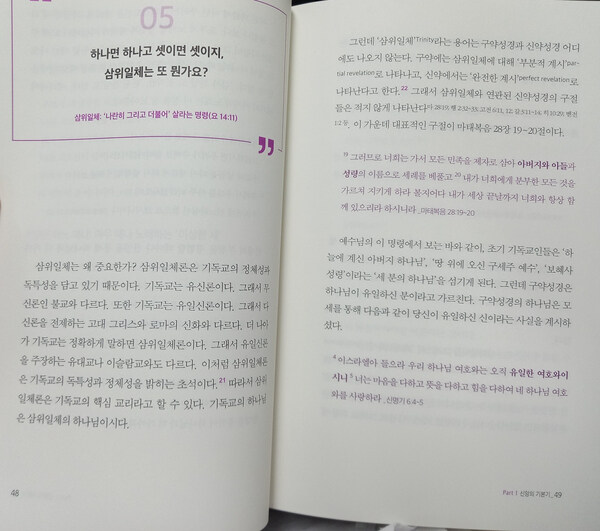 05
하나면 하나고 셋이면 셋이지,
삼위일체는 또 뭔가요?
삼위일체: '나란히 그리고 더불어' 살라는 명령(요 14:11)
”
삼위일체는 왜 중요한가? 삼위일체론은 기독교의 정체성과
독특성을 담고 있기 때문이다. 기독교는 유신론이다. 그래서 무
신론인 불교와 다르다. 또한 기독교는 유일신론이다. 그래서 다
신론을 전제하는 고대 그리스와 로마의 신화와 다르다. 더 나아
가 기독교는 정확하게 말하면 삼위일체론이다. 그래서 유일신론
을 주장하는 유대교나 이슬람교와도 다르다. 이처럼 삼위일체론
은 기독교의 독특성과 정체성을 밝히는 초석이다.21 따라서 삼위
일체론은 기독교의 핵심 교리라고 할 수 있다. 기독교의 하나님
은 삼위일체의 하나님이시다.
48
그런데 '삼위일체'Trinity라는 용어는 구약성경과 신약성경 어디
에도 나오지 않는다. 구약에는 삼위일체에 대해 '부분적 계시'par-
tial revelation로 나타나고, 신약에서는 '완전한 계시'perfect revelation로
나타난다고 한다.22 그래서 삼위일체와 연관된 신약성경의 구절
들은 적지 않게 나타난다
이 가운데 대표적인 구절이 마태복음 28장 19~20절이다.
19 그러므로 너희는 가서 모든 민족을 제자로 삼아 아버지와 아들과
성령의 이름으로 세례를 베풀고 20 내가 너희에게 분부한 모든 것을
가르쳐 지키게 하라 볼지어다 내가 세상 끝날까지 너희와 항상 함
께 있으리라 하시니라 _마태복음 28:19~20
예수님의 이 명령에서 보는 바와 같이, 초기 기독교인들은 '하
늘에 계신 아버지 하나님', '땅 위에 오신 구세주 예수', '보혜사
성령'이라는 '세 분의 하나님'을 섬기게 된다. 그런데 구약성경은
하나님이 유일하신 분이라고 가르친다. 구약성경의 하나님은 모
세를 통해 다음과 같이 당신이 유일하신 신이라는 사실을 계시하
셨다.
4 이스라엘아 들으라 우리 하나님 여호와는 오직 유일한 여호와이
시니 5 너는 마음을 다하고 뜻을 다하고 힘을 다하여 네 하나님 여호
와를 사랑하라 _신명기 6:4~5
Part I 신앙의 기본기_ 49